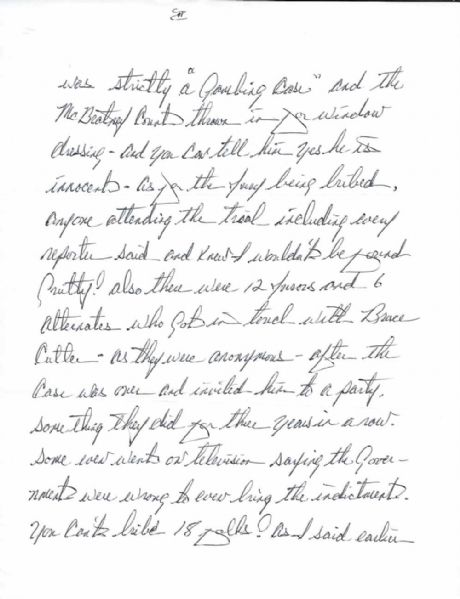 III
was strictly a "Gambling Case" and the
McBratney Count thrown in for window
dressing - and you can tell him yes he is
innocent - as for the jury being bribed,
anyone attending the trial including every
reporter said and knew I wouldn't be found
Guilty! also there were 12 jurors and 6
alternates who got in touch with Bruce
Cutler - as they were anonymous - after the
Case was over and invited him to a party.
something they did for three years in a row.
some even went on television saying the Gover-
nment were wrong to ever bring the indictment.
You can't bribe 18 people! As I said earlier